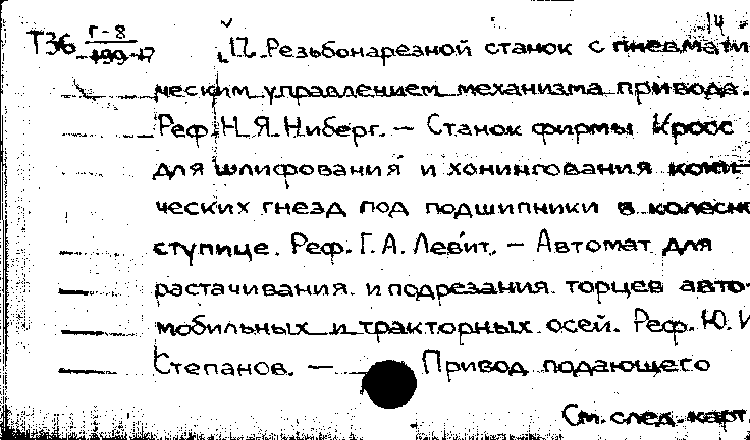 14
Т36 Г-8
199-17
П. Резьбонарезной станок с пневмати
ческим управлением механизма привода.
Реф. Н. Я. Ниберг. — Станок фирмы Кросс
для шлифования и хонингования кони-
ческих гнезд под подшипники в колесн
ступице. Реф. Г. А. Левит. — Автомат для
растачивания и подрезания торцев авто-
мобильных и тракторных осей. Реф. Ю. И
Степанов. — Привод подающего
См. след. карт.